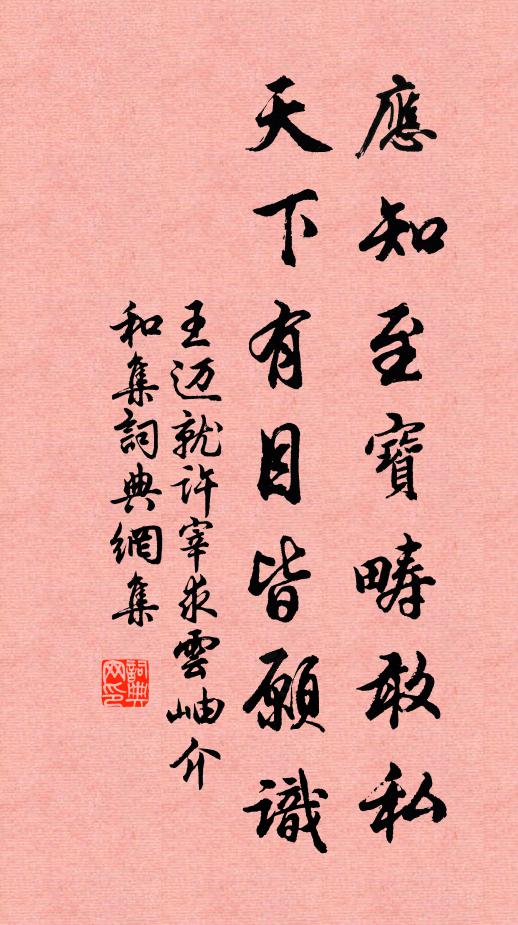 應知至寶疇敢私
天下有目皆願識
王迈就许宰求雲岫介
和集詞典網集
詞典网印